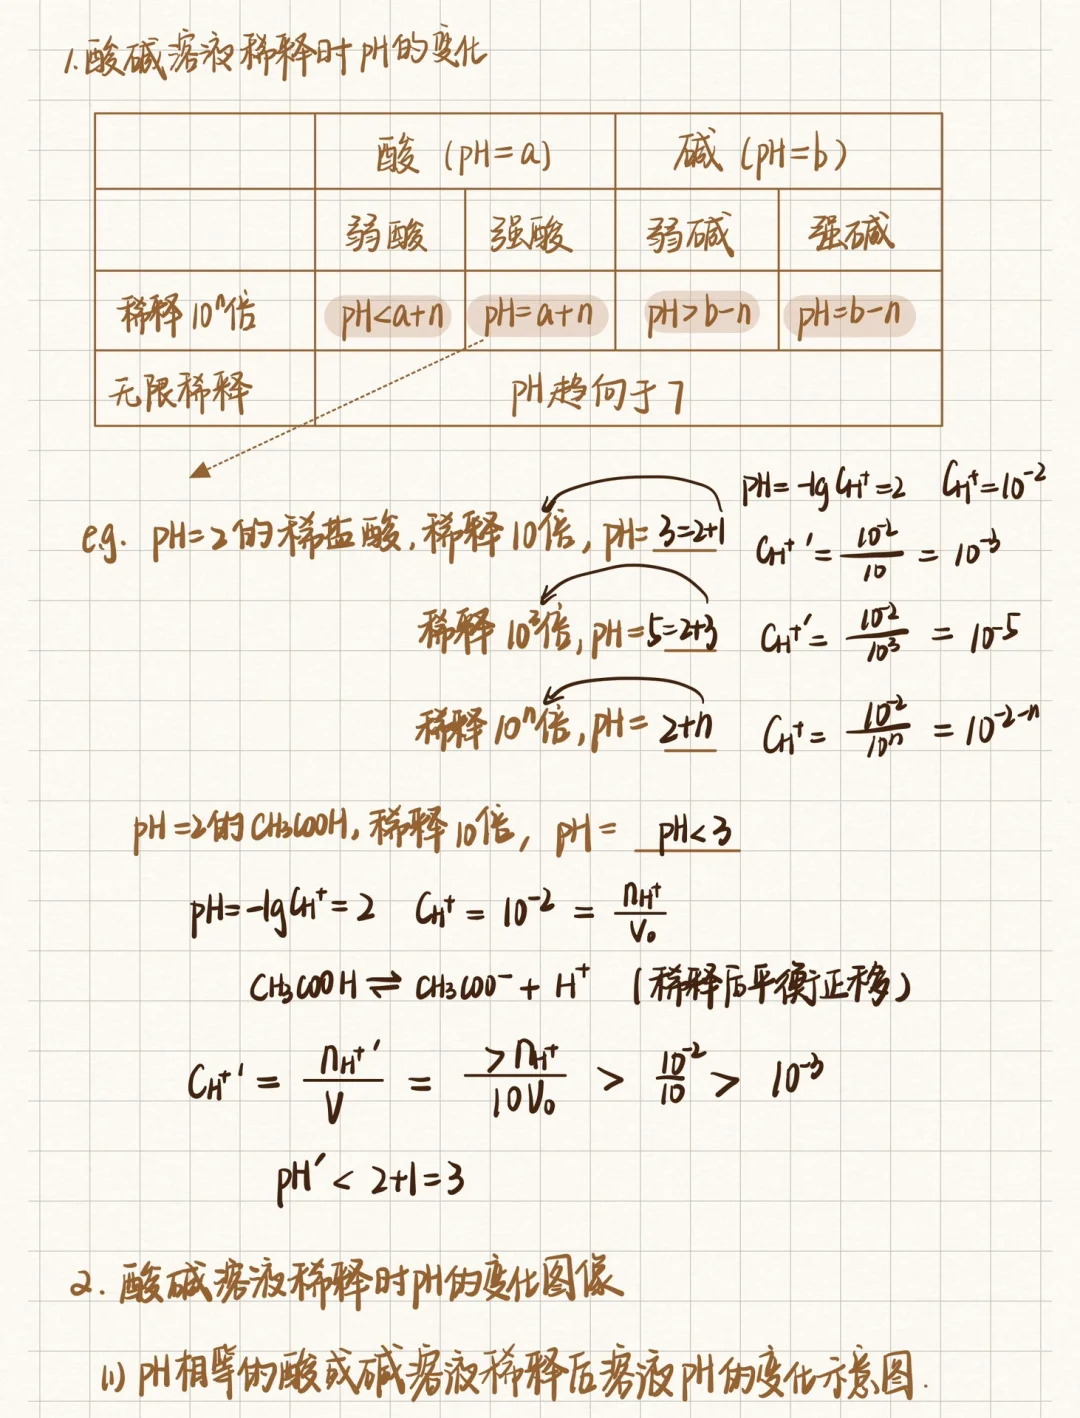 1.酸碱溶液稀释时pH的变化
酸 (pH=a) 碱 (pH=b)
弱酸 强酸 弱碱 强碱
稀释10ⁿ倍 pH<a+n pH=a+n pH>b-n pH=b-n
无限稀释 pH趋向于7
pH=-lgC_H⁺=2 C_H⁺=10⁻²
e.g. pH=2的稀盐酸,稀释10倍,pH=3=2+1 C_H⁺′=10⁻²/10=10⁻³
稀释10³倍,pH=5=2+3 C_H⁺′=10⁻²/10³=10⁻⁵
稀释10ⁿ倍,pH=2+n C_H⁺=10⁻²/10ⁿ=10⁻²⁻ⁿ
pH=2的CH3COOH,稀释10倍,pH=pH<3
pH=-lgC_H⁺=2 C_H⁺=10⁻²=n_H⁺/V₀
CH3COOH⇌CH3COO⁻+H⁺ (稀释后平衡正移)
C_H⁺′=n_H⁺′/V=>n_H⁺/10V₀>10⁻²/10>10⁻³
pH′<2+1=3
2.酸碱溶液稀释时pH的变化图像
(1)pH相等的酸或碱溶液稀释后溶液pH的变化示意图.